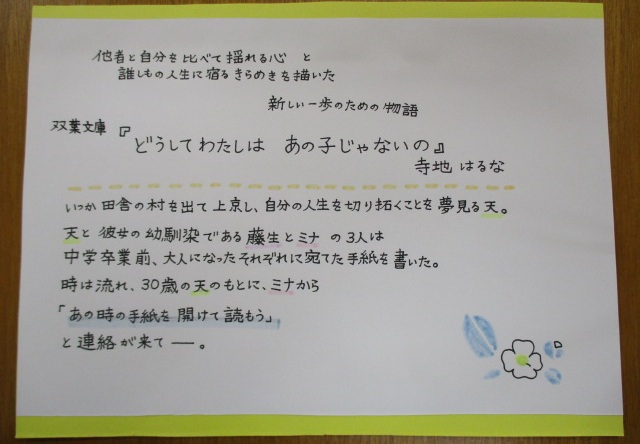 他者と自分を比べて揺れる心 と
誰しもの人生に宿るきらめきを描いた
新しい一歩のための物語
双葉文庫『どうしてわたしは あの子じゃないの』
寺地はるな
いつか田舎の村を出て上京し、自分の人生を切り拓くことを夢見る天。
天と彼女の幼馴染である藤生とミナの3人は
中学卒業前、大人になったそれぞれに宛てた手紙を書いた。
時は流れ、30歳の天のもとに、ミナから
「あの時の手紙を開けて読もう」
と連絡が来て―。